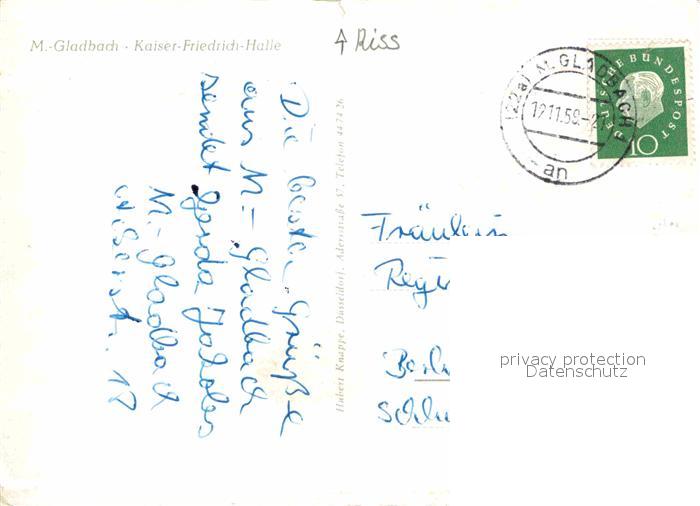 M.-Gladbach · Kaiser-Friedrich-Halle
Riss
(22a) M. GLADBACH 1
19.11.59.-2
an
DEUTSCHE BUNDESPOST
10
Die besten Grüße
aus M=Gladbach
sendet Gerda
M.-Gladbach
17
Hubert Knappe, Düsseldorf, Adersstraße 57, Telefon 44 74 26
Fräulein
Regi
Berl
Schu
privacy protection
Datenschutz